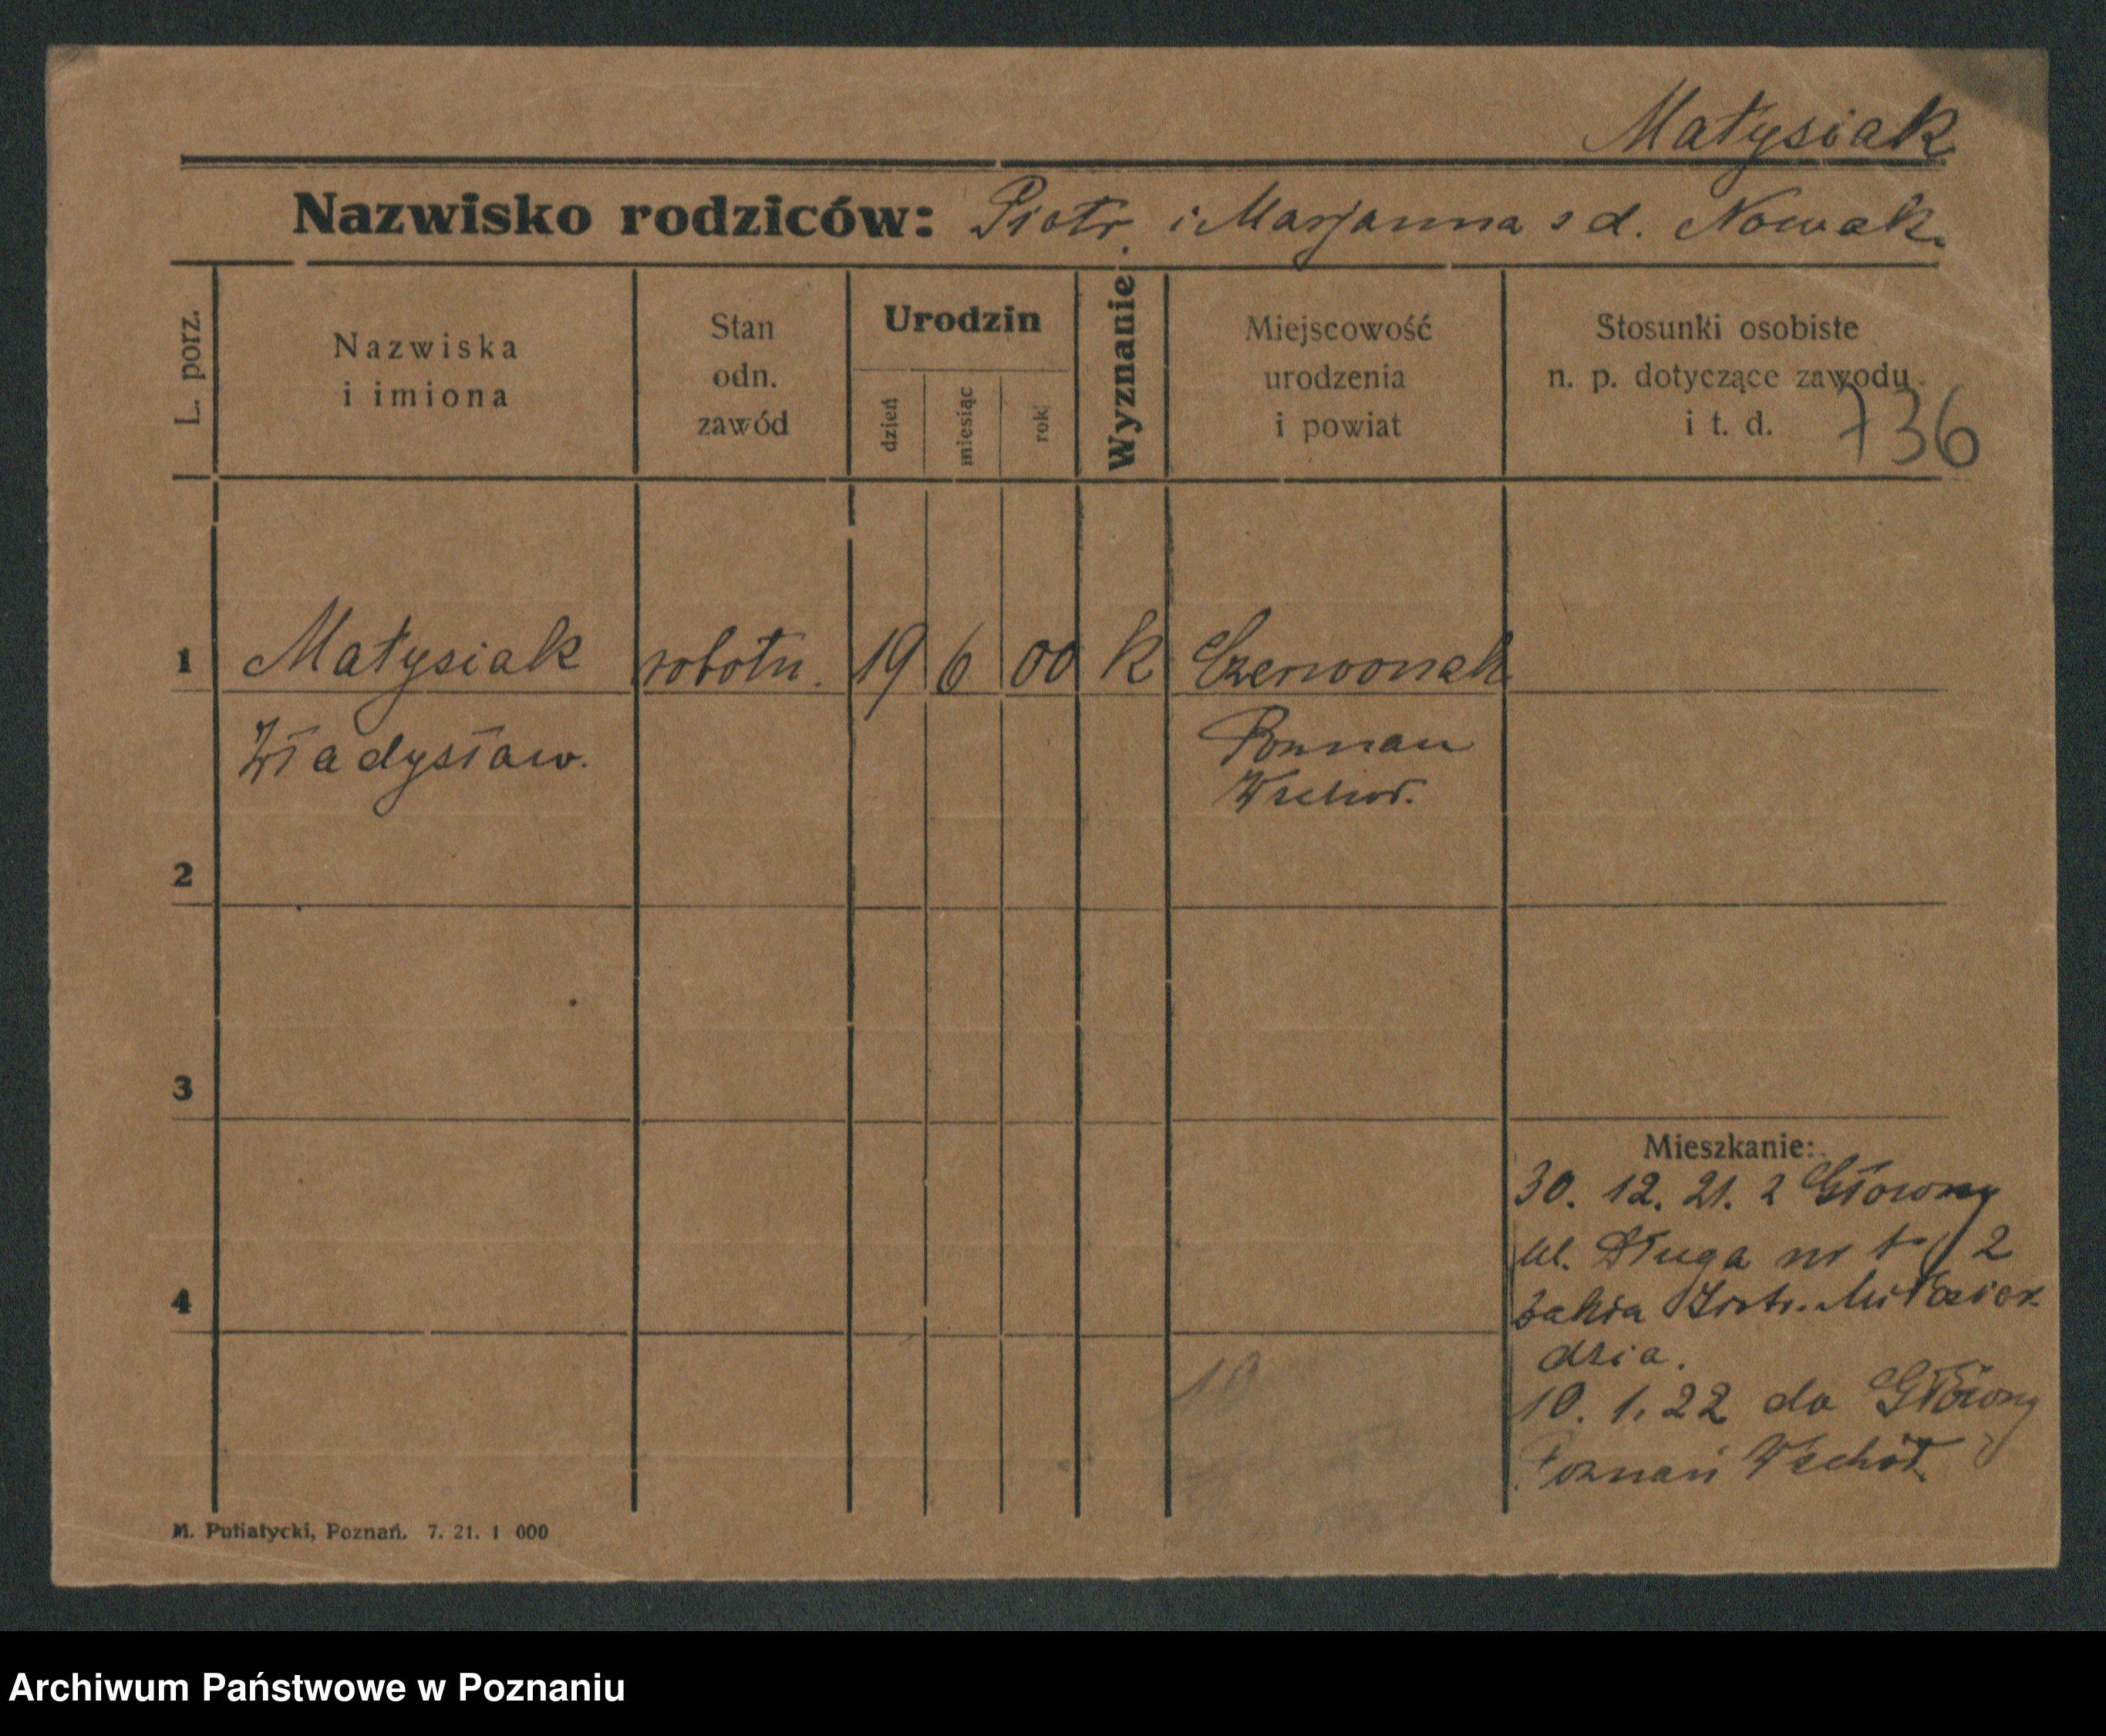 Matysiak
Nazwisko rodziców: Piotr i Marjanna z d. Nowak.
L. porz.
Nazwiska
i imiona
Stan
odn.
zawód
Urodzin
dzień
miesiąc
rok
Wyznanie
Miejscowość
urodzenia
i powiat
Stosunki osobiste
n. p. dotyczące zawodu
i t. d.
736
1 Matysiak robotn. 19 6 00 k Czerwonak
Władysław. Poznań
Wschod.
2
3
Mieszkanie:
30. 12. 21. z Główny
ul. Długa nr 1/2
4
Zakła Siostr. Miłosier
dzia.
10
10. 1. 22 do Główny
Poznań Wschód.
M. Putiatycki, Poznań. 7. 21. 1 000
Archiwum Państwowe w Poznaniu